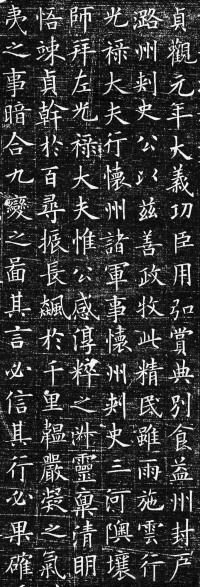 貞觀元年大義功臣用弘賞典別食益州封戶
潞州刾史公以茲善政牧此精民雖雨施雲行
光祿大夫行懷州諸軍事懷州刾史三河隩壤
師拜左光祿大夫惟公感淳粹之淋靈稟清明
悟竦貞幹於百尋振長飆於千里韞嚴凝之氣
夷之事暗合九變之啚其言必信其行必果確